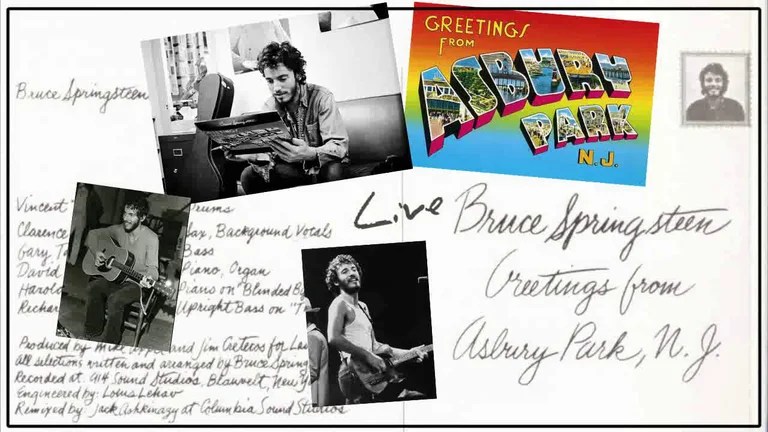 Bruce Springsteen
GREETINGS
FROM
ASBURY
PARK
N.J.
Vincent
Drums
Clarence
Sax, Background Vocals
Gary
Bass
David
Piano, Organ
Harold
Piano on "Blinded By
Richard
Upright Bass on
Live
Bruce Springsteen
Greetings from
Asbury Park, N.J.
Produced by Mike Appel and Jim Cretecos for
All selections written and arranged by Bruce Spring
Recorded at 914 Sound Studios, Blauvelt, New
Engineered by: Louis Lahav
Remixed by: Jack Ashkinazy at Columbia Sound Studios